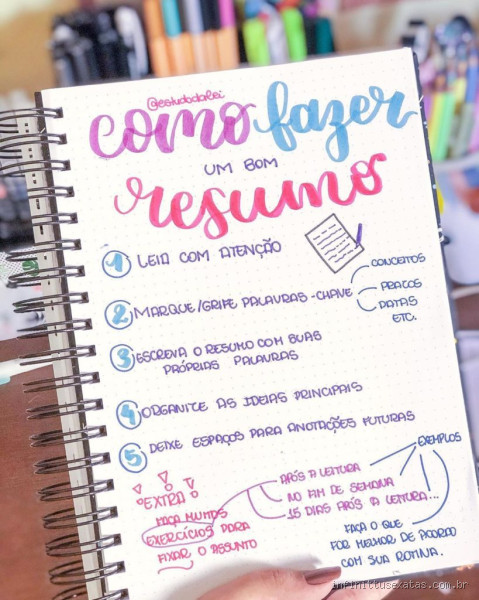 @estudodalei
como fazer
UM BOM
resumo
1 LEIA COM ATENÇÃO
2 MARQUE/GRIFE PALAVRAS-CHAVE
CONCEITOS
PRAZOS
DATAS
ETC.
3 ESCREVA O RESUMO COM SUAS
PRÓPRIAS PALAVRAS
4 ORGANIZE AS IDEIAS PRINCIPAIS
5 DEIXE ESPAÇOS PARA ANOTAÇÕES FUTURAS
EXEMPLOS
EXTRA
FAÇA MUITOS
EXERCÍCIOS PARA
FIXAR O ASSUNTO
APÓS A LEITURA
NO FIM DE SEMANA
15 DIAS APÓS A LEITURA...
FAÇA O QUE
FOR MELHOR DE ACORDO
COM SUA ROTINA.
infinittusexatas.com.br